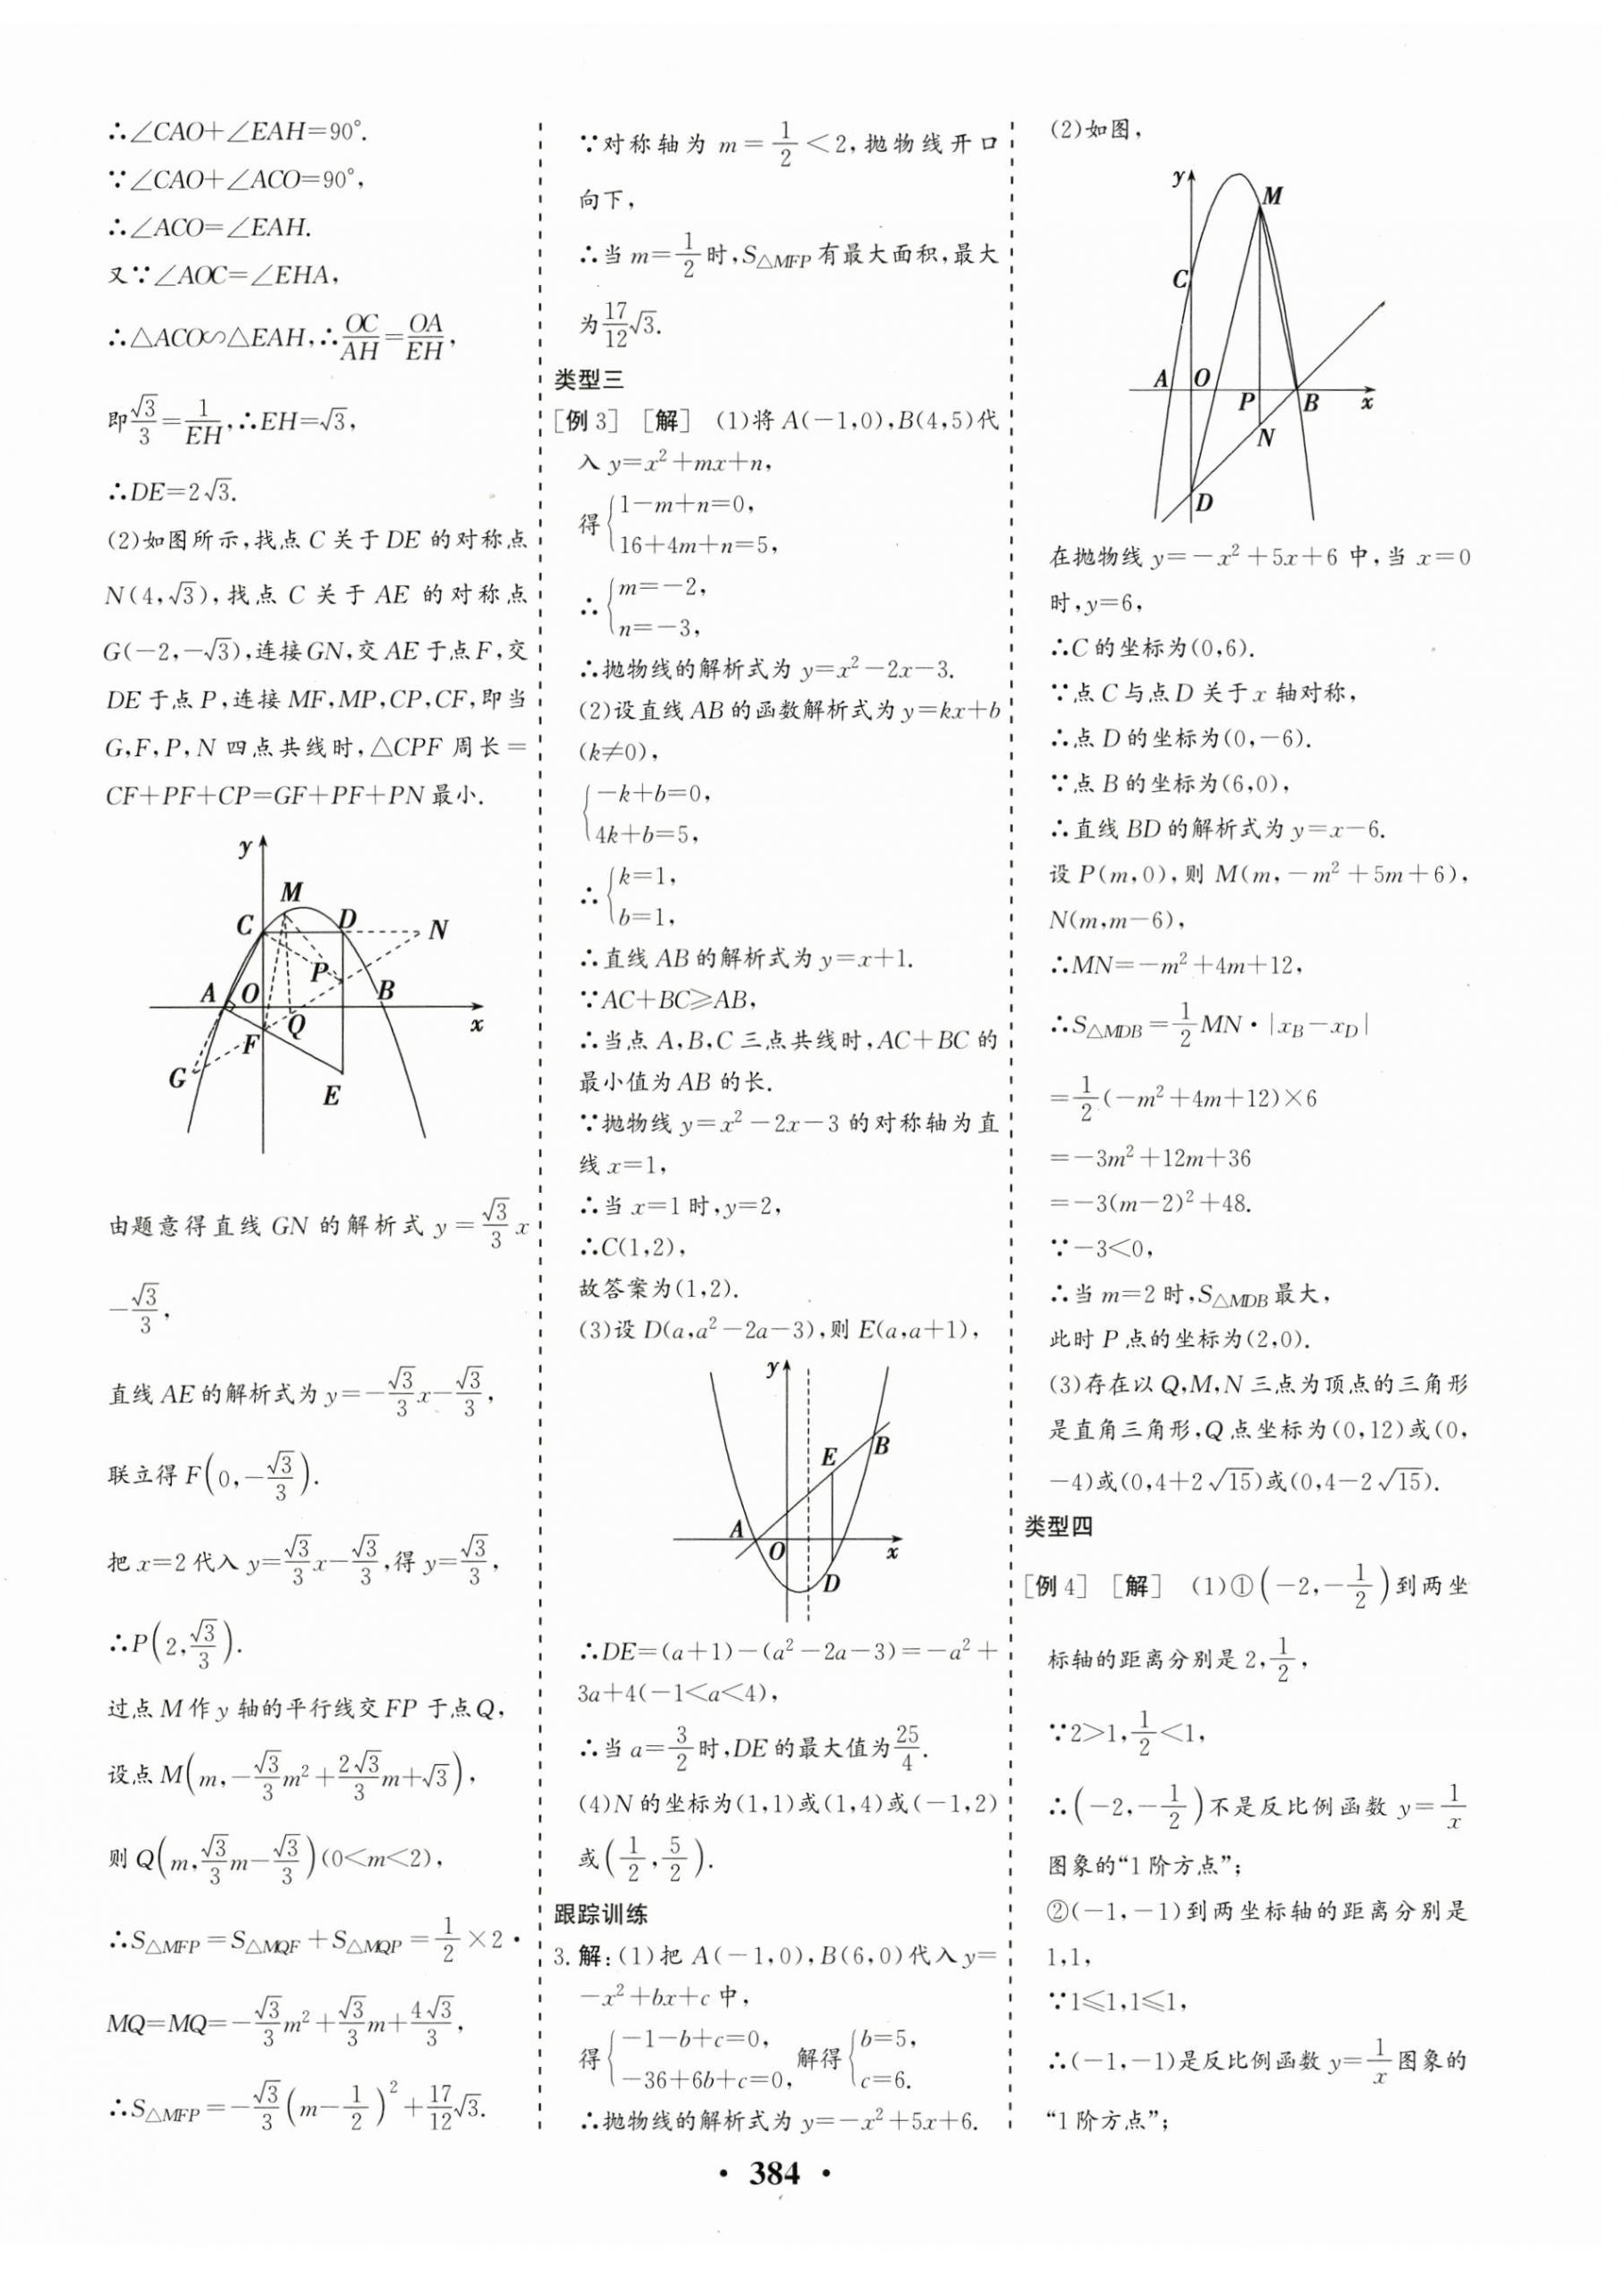 ∴∠CAO+∠EAH=90°.
∵∠CAO+∠ACO=90°,
∴∠ACO=∠EAH.
又∵∠AOC=∠EHA,
∴△ACO∽△EAH,∴OC/AH=OA/EH,
即√3/3=1/EH,∴EH=√3,
∴DE=2√3.
(2)如图所示,找点C关于DE的对称点
N(4,√3),找点C关于AE的对称点
G(-2,-√3),连接GN,交AE于点F,交
DE于点P,连接MF,MP,CP,CF,即当
G,F,P,N四点共线时,△CPF周长=
CF+PF+CP=GF+PF+PN最小.
y
M
C D N
P
A O B
Q x
F
G
E
由题意得直线GN的解析式y=√3/3x
-√3/3,
直线AE的解析式为y=-√3/3x-√3/3,
联立得F(0,-√3/3).
把x=2代入y=√3/3x-√3/3,得y=√3/3,
∴P(2,√3/3).
过点M作y轴的平行线交FP于点Q,
设点M(m,-√3/3m²+2√3/3m+√3),
则Q(m,√3/3m-√3/3)(0<m<2),
∴S△MFP=S△MQF+S△MQP=1/2×2·
MQ=MQ=-√3/3m²+√3/3m+4√3/3,
∴S△MFP=-√3/3(m-1/2)²+17/12√3.
∵对称轴为m=1/2<2,抛物线开口
向下,
∴当m=1/2时,S△MFP有最大面积,最大
为17/12√3.
类型三
[例3] [解] (1)将A(-1,0),B(4,5)代
入y=x²+mx+n,
得{1-m+n=0,
16+4m+n=5,
∴{m=-2,
n=-3,
∴抛物线的解析式为y=x²-2x-3.
(2)设直线AB的函数解析式为y=kx+b
(k≠0),
{-k+b=0,
4k+b=5,
∴{k=1,
b=1,
∴直线AB的解析式为y=x+1.
∵AC+BC⩾AB,
∴当点A,B,C三点共线时,AC+BC的
最小值为AB的长.
∵抛物线y=x²-2x-3的对称轴为直
线x=1,
∴当x=1时,y=2,
∴C(1,2),
故答案为(1,2).
(3)设D(a,a²-2a-3),则E(a,a+1),
y
E B
A
O x
D
∴DE=(a+1)-(a²-2a-3)=-a²+
3a+4(-1<a<4),
∴当a=3/2时,DE的最大值为25/4.
(4)N的坐标为(1,1)或(1,4)或(-1,2)
或(1/2,5/2).
跟踪训练
3.解:(1)把A(-1,0),B(6,0)代入y=
-x²+bx+c中,
得{-1-b+c=0, 解得{b=5,
-36+6b+c=0, c=6.
∴抛物线的解析式为y=-x²+5x+6.
(2)如图,
y
M
C
A O
P B x
N
D
在抛物线y=-x²+5x+6中,当x=0
时,y=6,
∴C的坐标为(0,6).
∵点C与点D关于x轴对称,
∴点D的坐标为(0,-6).
∵点B的坐标为(6,0),
∴直线BD的解析式为y=x-6.
设P(m,0),则M(m,-m²+5m+6),
N(m,m-6),
∴MN=-m²+4m+12,
∴S△MDB=1/2MN·|xB-xD|
=1/2(-m²+4m+12)×6
=-3m²+12m+36
=-3(m-2)²+48.
∵-3<0,
∴当m=2时,S△MDB最大,
此时P点的坐标为(2,0).
(3)存在以Q,M,N三点为顶点的三角形
是直角三角形,Q点坐标为(0,12)或(0,
-4)或(0,4+2√15)或(0,4-2√15).
类型四
[例4] [解] (1)①(-2,-1/2)到两坐
标轴的距离分别是2,1/2,
∵2>1,1/2<1,
∴(-2,-1/2)不是反比例函数y=1/x
图象的“1阶方点”;
②(-1,-1)到两坐标轴的距离分别是
1,1,
∵1⩽1,1⩽1,
∴(-1,-1)是反比例函数y=1/x图象的
“1阶方点”;
• 384 •